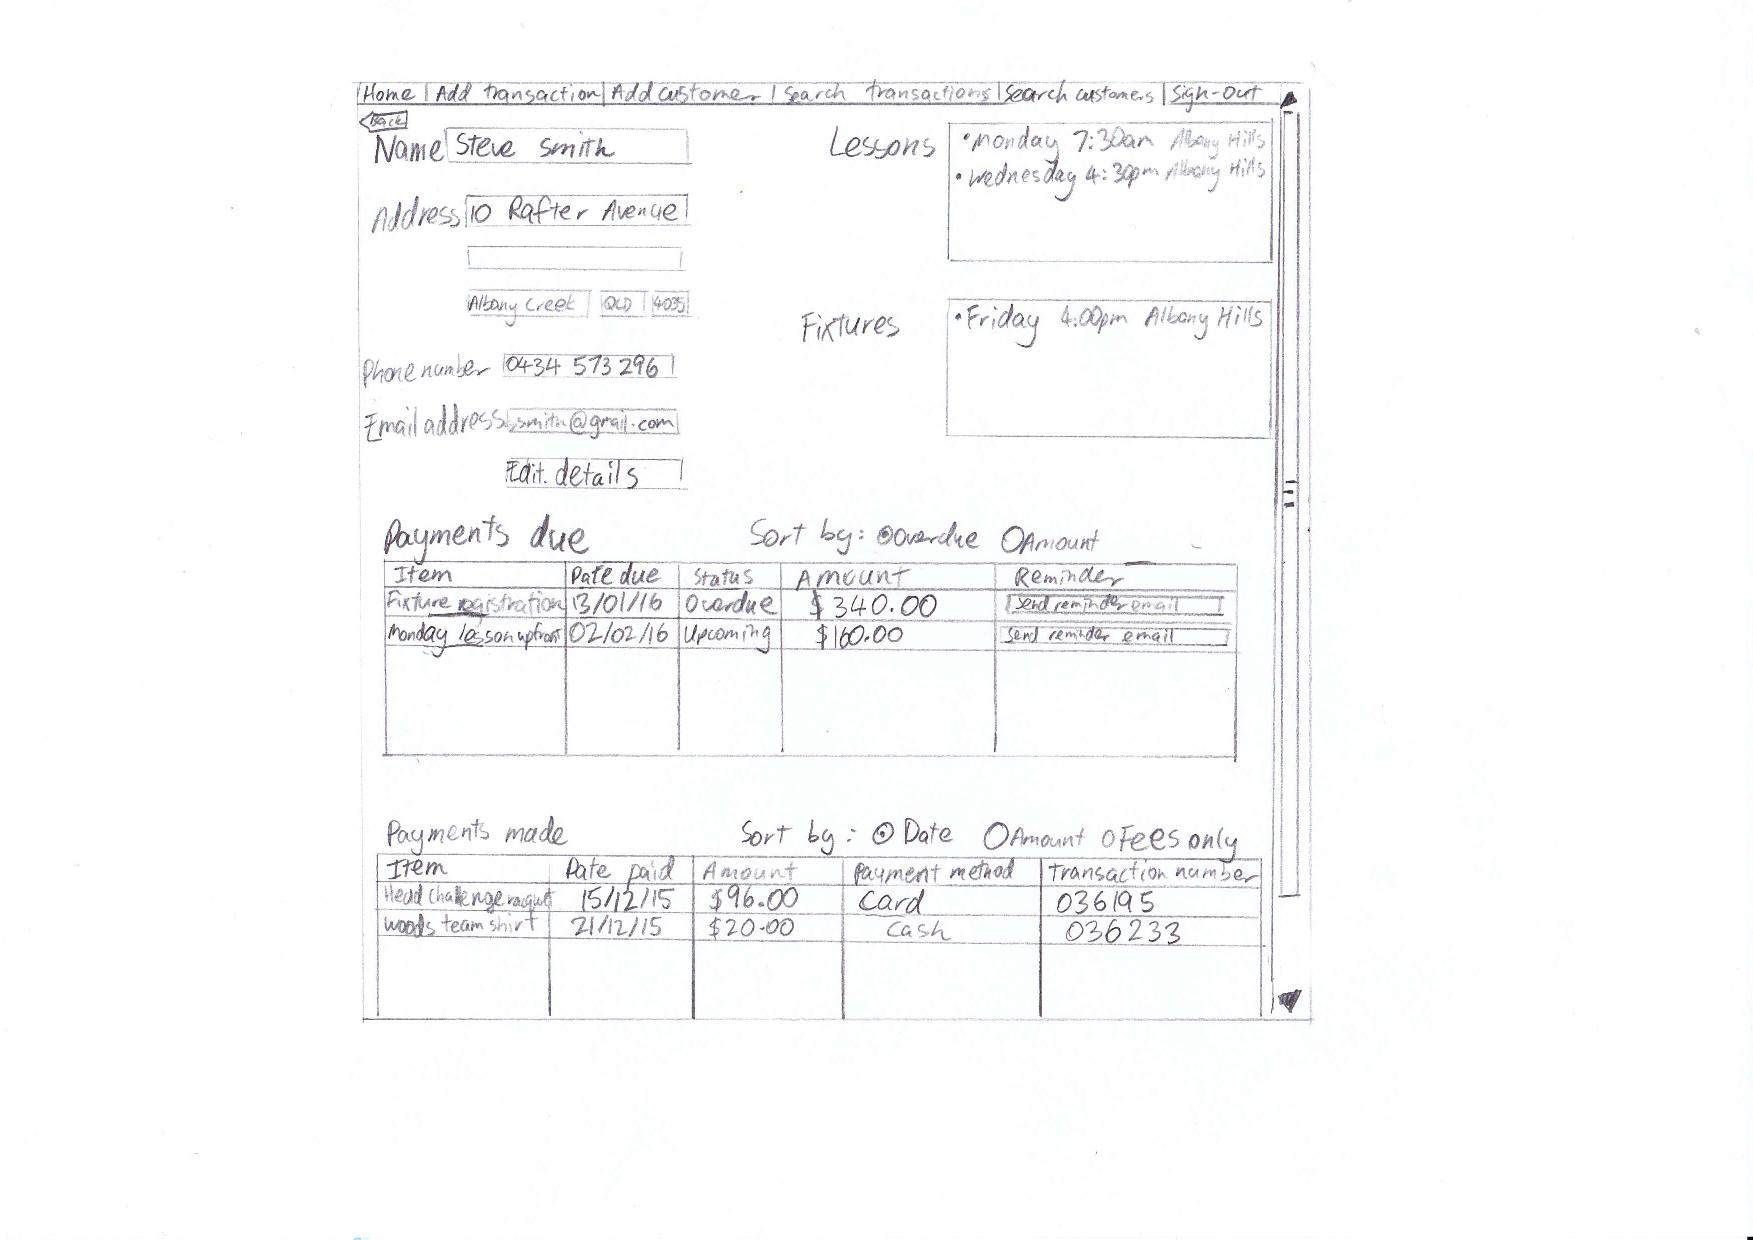 Home | Add transaction | Add customer | Search transactions | Search customers | Sign-out
Back
Name Steve Smith
Address 10 Rafter Avenue
Albany Creek QLD 4035
Phone number 0434 573 296
Email address s.smith@gmail.com
Edit details
Lessons
• Monday 7:30am Albany Hills
• Wednesday 4:30pm Albany Hills
Fixtures
• Friday 4:00pm Albany Hills
Payments due Sort by: Overdue Amount
Item Date due Status Amount Reminder
Fixture registration 13/01/16 Overdue $340.00 Send reminder email
Monday lesson upfront 02/02/16 Upcoming $160.00 Send reminder email
Payments made Sort by: Date Amount Fees only
Item Date paid Amount Payment method Transaction number
Head challenge racquet 15/12/15 $96.00 Card 036195
Woods team shirt 21/12/15 $20.00 Cash 036233